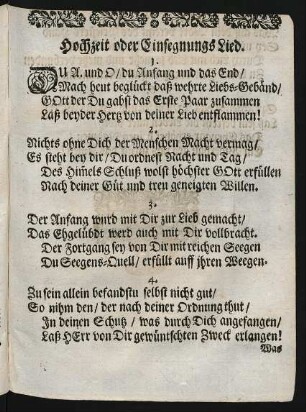 Hochzeit oder Einsegnungs Lied.
1.
DU A. und O / du Anfang und das End /
Mach heut beglückt daß wehrte Liebs-Gebänd /
GOtt der Du gabst das Erste Paar zusammen
Laß beyder Hertz von deiner Lieb entflammen!
2.
Nichts ohne Dich der Menschen Macht vermag /
Es steht bey dir / Du ordnest Nacht und Tag /
Des Him̃els Schluß wolst höchster GOtt erfüllen
Nach deiner Güt und treu geneigten Willen.
3.
Der Anfang wird mit Dir zur Lieb gemacht /
Das Ehgelübdt werd auch mit Dir vollbracht.
Der Fortgang sey von Dir mit reichen Seegen
Du Seegens-Quell / erfüllt auff jhren Weegen.
4.
Zu sein allein befandstu selbst nicht gut /
So nihm den / der nach deiner Ordnung thut /
In deinen Schutz / was durch Dich angefangen /
Laß HErr von Dir gewünschten Zweck erlangen!
Was